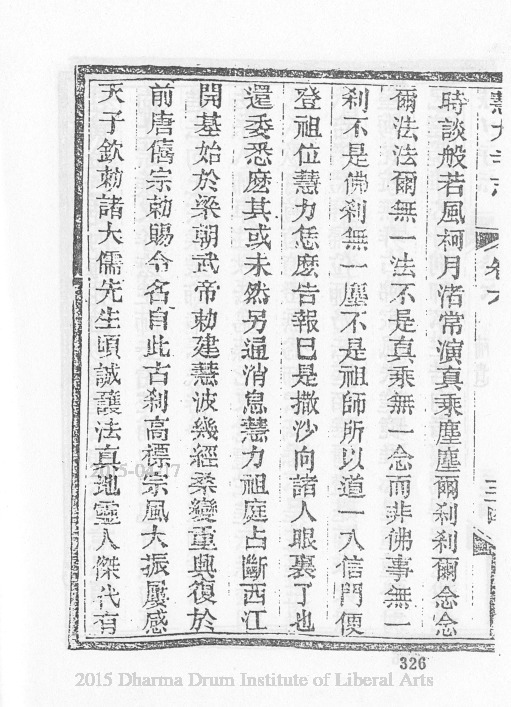 慧力寺志 卷六 三四
時談般若風柯月渚常演真乘塵塵爾刹刹爾念念
爾法法爾無一法不是真乘無一念而非佛事無一
刹不是佛刹無一塵不是祖師所以道一入信門便
登祖位慧力恁麽告報巳是撒沙向諸人眼裏了也
還委悉麽其或未然另通消息慧力祖庭占斷西江
開基始於梁朝武帝勅建慧波幾經桑變重興復於
前唐僖宗勅賜今名自此古刹高標宗風大振屢感
天子欽勅諸大儒先生頃誠護法真地靈人傑代有
326
2015 Dharma Drum Institute of Liberal Arts